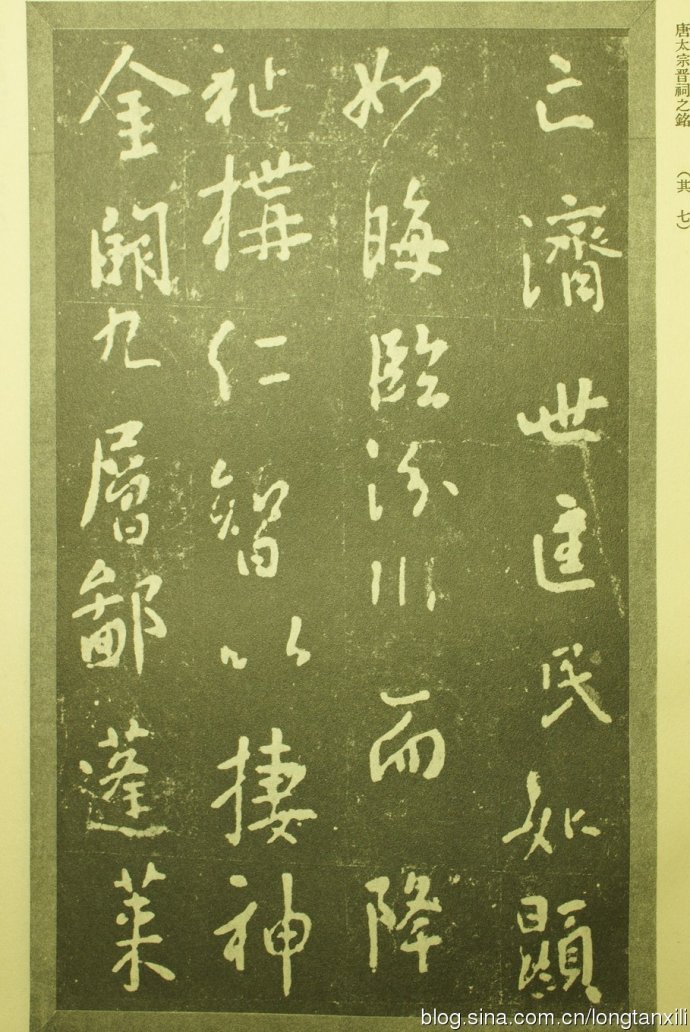 唐太宗晋祠之銘　（其七）
亡濟世匡民如顯
如晦臨汾川而降
祉構仁智以棲神
金闕九層鄙蓬萊
blog.sina.com.cn/longtanxili